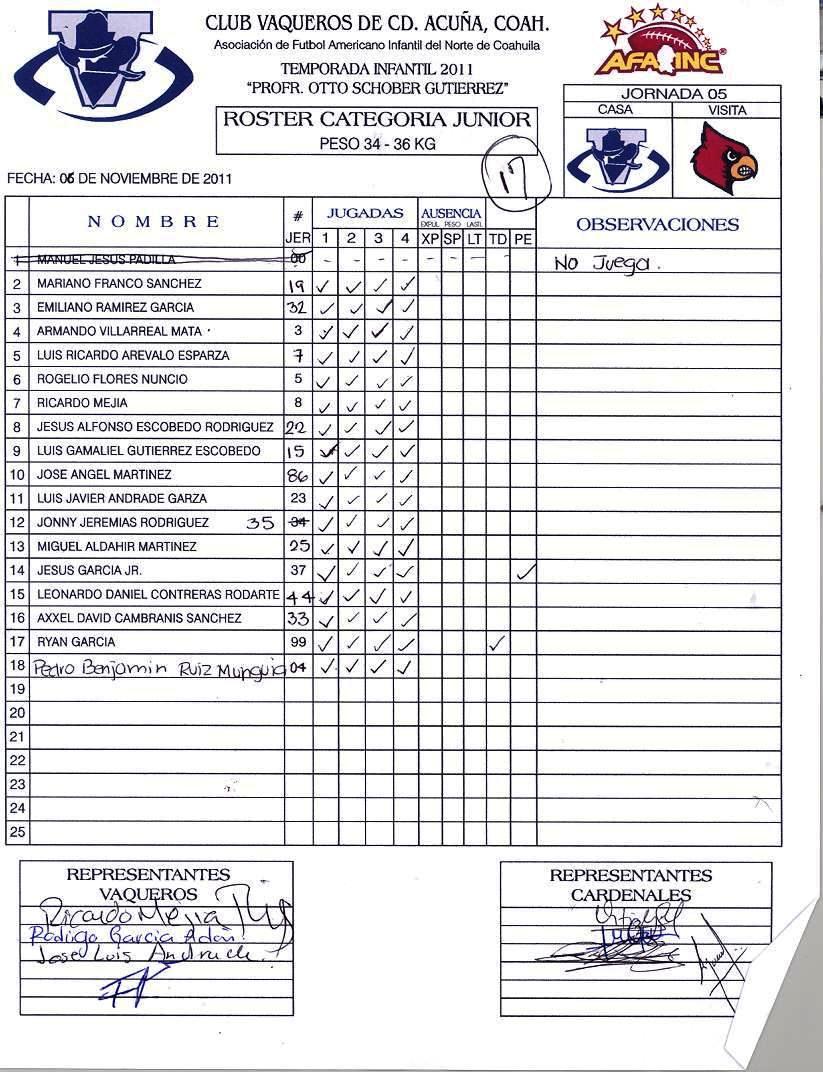 CLUB VAQUEROS DE CD. ACUÑA, COAH.
Asociación de Futbol Americano Infantil del Norte de Coahuila
TEMPORADA INFANTIL 2011
"PROFR. OTTO SCHOBER GUTIERREZ"
ROSTER CATEGORIA JUNIOR
PESO 34 - 36 KG
17
AFAINC®
JORNADA 05
CASA VISITA
FECHA: 06 DE NOVIEMBRE DE 2011
NOMBRE # JER JUGADAS 1 2 3 4 AUSENCIA EXPUL PESO LAST. XP SP LT TD PE OBSERVACIONES
1 MANUEL JESUS PADILLA 00 - - - - - - - - - No Juega.
2 MARIANO FRANCO SANCHEZ 19 ✓ ✓ ✓ ✓
3 EMILIANO RAMIREZ GARCIA 32 ✓ ✓ ✓ ✓
4 ARMANDO VILLARREAL MATA 3 ✓ ✓ ✓ ✓
5 LUIS RICARDO AREVALO ESPARZA 7 ✓ ✓ ✓ ✓
6 ROGELIO FLORES NUNCIO 5 ✓ ✓ ✓ ✓
7 RICARDO MEJIA 8 ✓ ✓ ✓ ✓
8 JESUS ALFONSO ESCOBEDO RODRIGUEZ 22 ✓ ✓ ✓ ✓
9 LUIS GAMALIEL GUTIERREZ ESCOBEDO 15 ✓ ✓ ✓ ✓
10 JOSE ANGEL MARTINEZ 86 ✓ ✓ ✓ ✓
11 LUIS JAVIER ANDRADE GARZA 23 ✓ ✓ ✓ ✓
12 JONNY JEREMIAS RODRIGUEZ 35 34 ✓ ✓ ✓ ✓
13 MIGUEL ALDAHIR MARTINEZ 25 ✓ ✓ ✓ ✓
14 JESUS GARCIA JR. 37 ✓ ✓ ✓ ✓ ✓
15 LEONARDO DANIEL CONTRERAS RODARTE 44 ✓ ✓ ✓ ✓
16 AXXEL DAVID CAMBRANIS SANCHEZ 33 ✓ ✓ ✓ ✓
17 RYAN GARCIA 99 ✓ ✓ ✓ ✓ ✓
18 Pedro Benjamin Ruiz Munguia 04 ✓ ✓ ✓ ✓
19
20
21
22
23
24
25
REPRESENTANTES
VAQUEROS
Ricardo Mejia
Rodrigo Garcia Adan
Jose Luis Andrade
REPRESENTANTES
CARDENALES